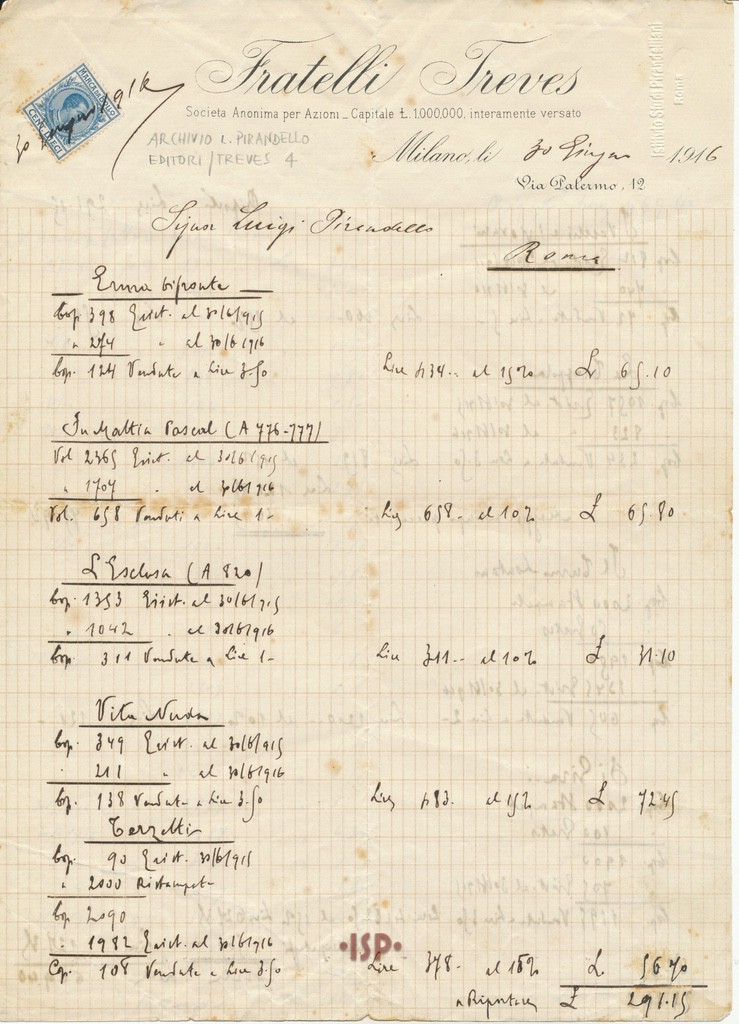 Fratelli Treves
Societa Anonima per Azioni _ Capitale Ł. 1,000,000, interamente versato
MARCA DA BOLLO
CENT. DIECI
30 Giugno 1916
ARCHIVIO L. PIRANDELLO
EDITORI / TREVES 4
Istituto Studi Pirandelliani
Roma
Milano, li 30 Giugno 1916
Via Palermo, 12
Signor Luigi Pirandello
Roma
Erma bifronte
Cop. 398 Esist. al 30/6/915
" 274 " al 30/6/916
Cop. 124 Vendute a Lire 3.50 Lire 434.- al 15% L 65.10
Fu Mattia Pascal (A 776-777)
Vol 2365 Esist. al 30/6/915
" 1707 " al 30/6/916
Vol. 658 Venduti a Lire 1- Lire 658- al 10% £ 65.80
L'Esclusa (A 820)
Cop. 1353 Esist. al 30/6/915
" 1042 " al 30/6/916
Cop 311 Vendute a Lire 1- Lire 311.- al 10% £ 31.10
Vita Nuda
Cop. 349 Esist. al 30/6/915
" 211 " al 30/6/916
Cop. 138 Vendute a Lire 3.50 Lire 483. al 15% L 72.45
Terzetti
Cop. 90 Esist. 30/6/915
" 2000 Ristampate
Cop 2090
" 1982 Esist. al 30/6/916
Cop. 108 Vendute a Lire 3.50 Lire 378- al 15% L. 56.70
·ISP·
a Riportare £ 291.15